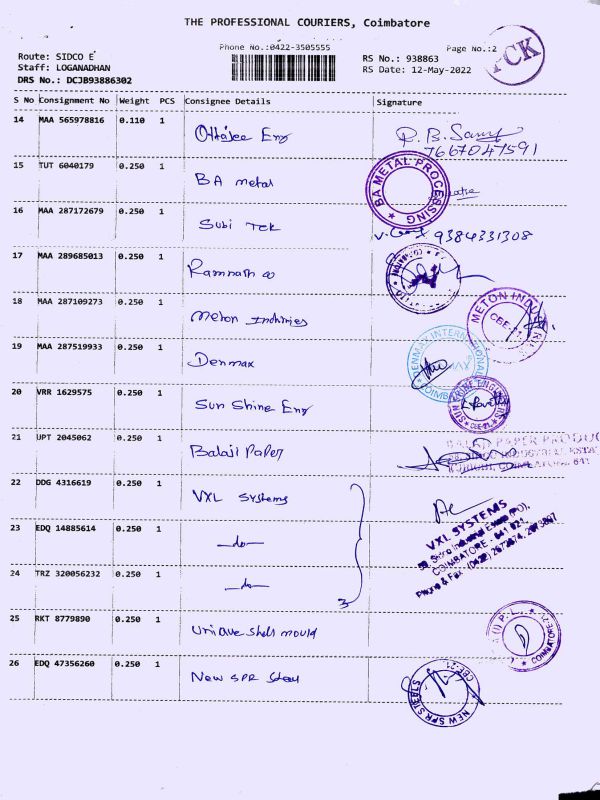 THE PROFESSIONAL COURIERS, Coimbatore
Phone No.:0422-3505555
Page No.:2
PCK
Route: SIDCO E
RS No.: 938863
Staff: LOGANADHAN
RS Date: 12-May-2022
DRS No.: DCJB93886302
S No Consignment No Weight PCS Consignee Details Signature
14 MAA 565978816 0.110 1
R.B. Samy
7667047591
15 TUT 6040179 0.250 1 BA metal
BA METAL PROCESSING
16 MAA 287172679 0.250 1 Subi Tek
9384331308
17 MAA 289685013 0.250 1 Ramnath
18 MAA 287109273 0.250 1 Meton
METON INDU
CBE-21
19 MAA 287519933 0.250 1 Denmax
DENMAX INTERNATIONAL
COIMBA
20 VRR 1629575 0.250 1 Sun Shine Eng
SUN SHINE ENGINEERS
CBE-21
21 UPT 2045062 0.250 1 Balaji Paper
BALAJI PAPER PRODUC
22 DDG 4316619 0.250 1 VXL Systems
VXL SYSTEMS
COIMBATORE - 641 021.
23 EDQ 14885614 0.250 1 -do-
24 TRZ 320056232 0.250 1 -do-
3
25 RKT 8779890 0.250 1 Unique shell mould
COIMBATORE-21
26 EDQ 47356260 0.250 1 New SPR Steel
NEW SPR STEELS
CBE-21